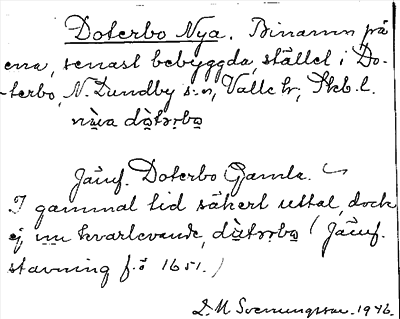 Doterbo Nya. Binamn på
ena, senast bebyggda, stället i Do-
terbo, N. Lundby s:n, Valle hr, Skb. l.
nẏa dòtərbo
Jämf. Doterbo Gamla.
I gammal tid säkert uttal, dock
ej nu kvarlevande, dòtərbo (Jämf.
stavning f. ö 1651.)
L. M Svenungsson. 1946.